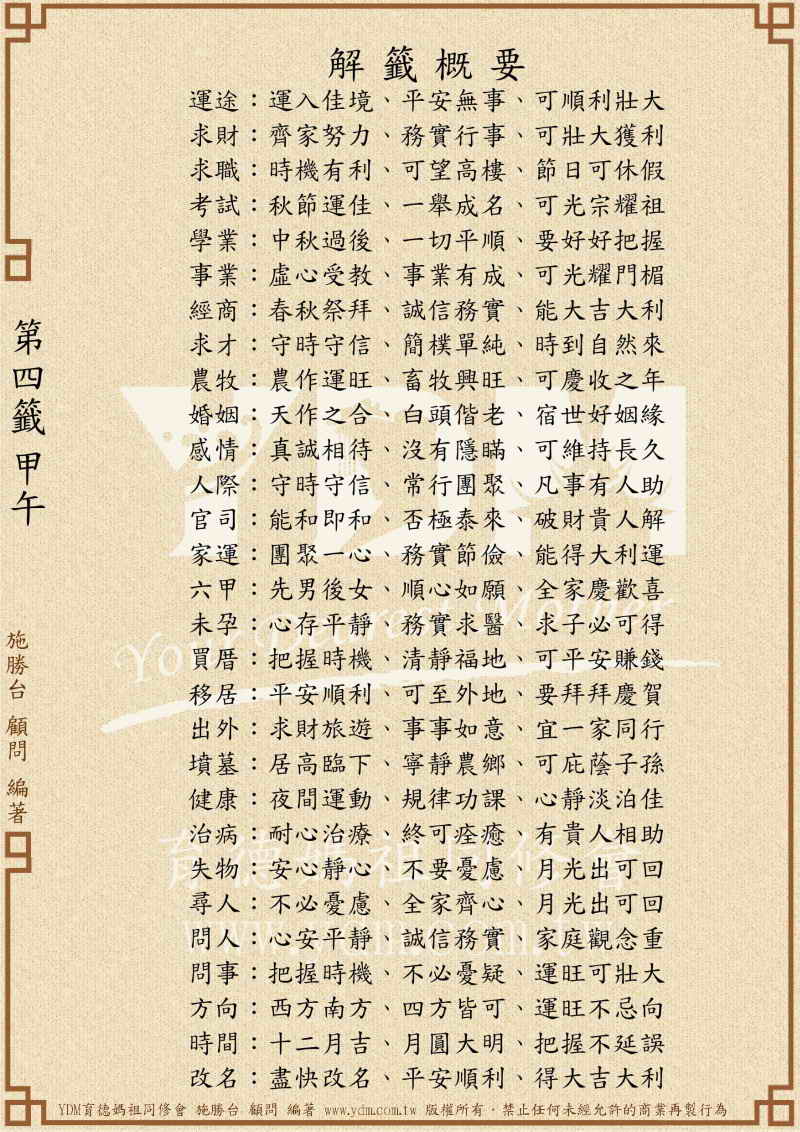 解籤概要
運途：運入佳境、平安無事、可順利壯大
求財：齊家努力、務實行事、可壯大獲利
求職：時機有利、可望高樓、節日可休假
考試：秋節運佳、一舉成名、可光宗耀祖
學業：中秋過後、一切平順、要好好把握
事業：虛心受教、事業有成、可光耀門楣
經商：春秋祭拜、誠信務實、能大吉大利
求才：守時守信、簡樸單純、時到自然來
農牧：農作運旺、畜牧興旺、可慶收之年
婚姻：天作之合、白頭偕老、宿世好姻緣
感情：真誠相待、沒有隱瞞、可維持長久
人際：守時守信、常行團聚、凡事有人助
官司：能和即和、否極泰來、破財貴人解
家運：團聚一心、務實節儉、能得大利運
六甲：先男後女、順心如願、全家慶歡喜
未孕：心存平靜、務實求醫、求子必可得
買厝：把握時機、清靜福地、可平安賺錢
移居：平安順利、可至外地、要拜拜慶賀
出外：求財旅遊、事事如意、宜一家同行
墳墓：居高臨下、寧靜農鄉、可庇蔭子孫
健康：夜間運動、規律功課、心靜淡泊佳
治病：耐心治療、終可痊癒、有貴人相助
失物：安心靜心、不要憂慮、月光出可回
尋人：不必憂慮、全家齊心、月光出可回
問人：心安平靜、誠信務實、家庭觀念重
問事：把握時機、不必憂疑、運旺可壯大
方向：西方南方、四方皆可、運旺不忌向
時間：十二月吉、月圓大明、把握不延誤
改名：盡快改名、平安順利、得大吉大利
第四籤 甲午
施勝台 顧問 編著
YDM
Your Dearest Mother
育德媽祖同修會
www.ydm.com.tw
YDM育德媽祖同修會 施勝台 顧問 編著 www.ydm.com.tw 版權所有，禁止任何未經允許的商業再製行為